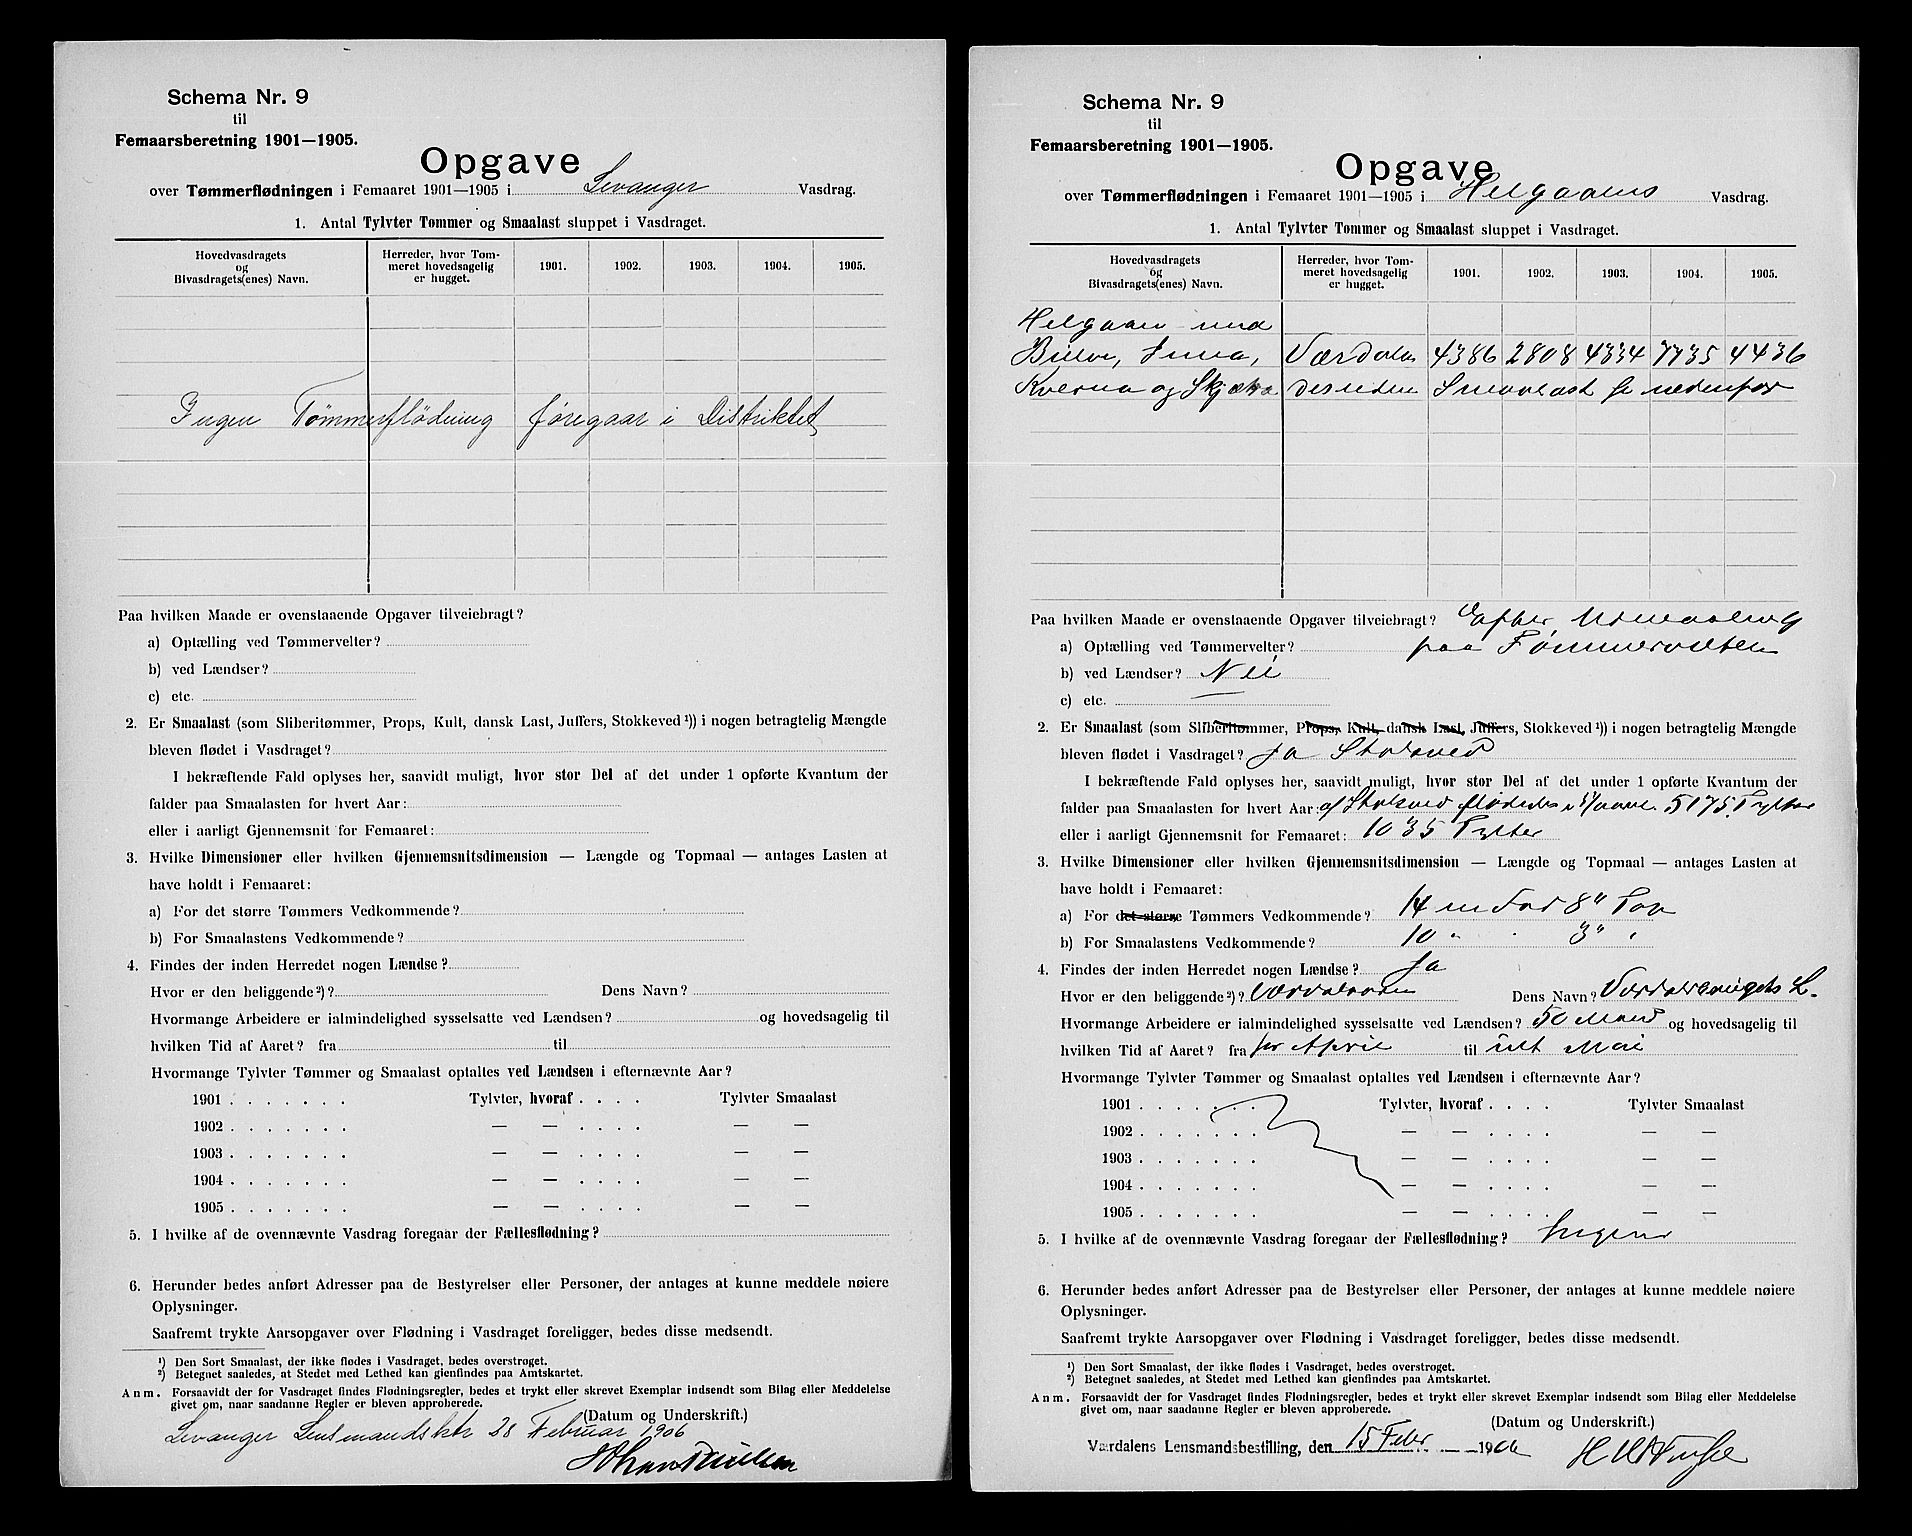 Schema Nr. 9
til
Femaarsberetning 1901—1905.
Opgave
over Tømmerflødningen i Femaaret 1901—1905 i Levanger Vasdrag.
1. Antal Tylvter Tømmer og Smaalast sluppet i Vasdraget.
Hovedvasdragets
og
Bivasdragets(enes) Navn.
Herreder, hvor Tøm-
meret hovedsagelig
er hugget.
1901. 1902. 1903. 1904. 1905.
Ingen Tømmerflödning föregaar i Distriktet
Paa hvilken Maade er ovenstaaende Opgaver tilveiebragt?
a) Optælling ved Tømmervelter?
b) ved Lændser?
c) etc.
2. Er Smaalast (som Sliberitømmer, Props, Kult, dansk Last, Juffers, Stokkeved ¹)) i nogen betragtelig Mængde
bleven flødet i Vasdraget?
I bekræftende Fald oplyses her, saavidt muligt, hvor stor Del af det under 1 opførte Kvantum der
falder paa Smaalasten for hvert Aar:
eller i aarligt Gjennemsnit for Femaaret:
3. Hvilke Dimensioner eller hvilken Gjennemsnitsdimension — Længde og Topmaal — antages Lasten at
have holdt i Femaaret:
a) For det større Tømmers Vedkommende?
b) For Smaalastens Vedkommende?
4. Findes der inden Herredet nogen Lændse?
Hvor er den beliggende ²)? Dens Navn?
Hvormange Arbeidere er ialmindelighed sysselsatte ved Lændsen? og hovedsagelig til
hvilken Tid af Aaret? fra til
Hvormange Tylvter Tømmer og Smaalast optaltes ved Lændsen i efternævnte Aar?
1901 . . . . . . . Tylvter, hvoraf . . . . Tylvter Smaalast
1902 . . . . . . . — — . . . . — —
1903 . . . . . . . — — . . . . — —
1904 . . . . . . . — — . . . . — —
1905 . . . . . . . — — . . . . — —
5. I hvilke af de ovennævnte Vasdrag foregaar der Fællesflødning?
6. Herunder bedes anført Adresser paa de Bestyrelser eller Personer, der antages at kunne meddele nøiere
Oplysninger.
Saafremt trykte Aarsopgaver over Flødning i Vasdraget foreligger, bedes disse medsendt.
¹) Den Sort Smaalast, der ikke flødes i Vasdraget, bedes overstrøget.
²) Betegnet saaledes, at Stedet med Lethed kan gienfindes paa Amtskartet.
Anm. Forsaavidt der for Vasdraget findes Flødningsregler, bedes et trykt eller skrevet Exemplar indsendt som Bilag eller Meddelelse
givet om, naar saadanne Regler er bleven approberede.
(Datum og Underskrift.)
Levanger Lensmandsktr 28 Februar 1906
Schema Nr. 9
til
Femaarsberetning 1901—1905.
Opgave
over Tømmerflødningen i Femaaret 1901—1905 i Helgaaens Vasdrag.
1. Antal Tylvter Tømmer og Smaalast sluppet i Vasdraget.
Hovedvasdragets
og
Bivasdragets(enes) Navn.
Herreder, hvor Tøm-
meret hovedsagelig
er hugget.
1901. 1902. 1903. 1904. 1905.
Helgaaen med
Bielve, Inna, Værdalen 4386 2808 4334 7735 4436
Kverna og Skjækra desuden Smaalast se nedenfor
Paa hvilken Maade er ovenstaaende Opgaver tilveiebragt? Efter Udmaaling
a) Optælling ved Tømmervelter? paa Tømmervelten
b) ved Lændser? Nei
c) etc. —
2. Er Smaalast (som Sliberitømmer, Props, Kult, dansk Last, Juffers, Stokkeved ¹)) i nogen betragtelig Mængde
bleven flødet i Vasdraget? Ja Stokved
I bekræftende Fald oplyses her, saavidt muligt, hvor stor Del af det under 1 opførte Kvantum der
falder paa Smaalasten for hvert Aar: af Stokved flødedes i 5/aaret 5175 Tylter
eller i aarligt Gjennemsnit for Femaaret: 1035 Tylter
3. Hvilke Dimensioner eller hvilken Gjennemsnitsdimension — Længde og Topmaal — antages Lasten at
have holdt i Femaaret:
a) For det større Tømmers Vedkommende? 14 Fod 8" Top
b) For Smaalastens Vedkommende? 10 " 3" "
4. Findes der inden Herredet nogen Lændse? Ja
Hvor er den beliggende ²)? Værdalsøren Dens Navn? Værdalsbrugets L.
Hvormange Arbeidere er ialmindelighed sysselsatte ved Lændsen? 50 Mand og hovedsagelig til
hvilken Tid af Aaret? fra April til ult Mai
Hvormange Tylvter Tømmer og Smaalast optaltes ved Lændsen i efternævnte Aar?
1901 . . . . . . . Tylvter, hvoraf . . . . Tylvter Smaalast
1902 . . . . . . . — — . . . . — —
1903 . . . . . . . — — . . . . — —
1904 . . . . . . . — — . . . . — —
1905 . . . . . . . — — . . . . — —
5. I hvilke af de ovennævnte Vasdrag foregaar der Fællesflødning? Ingen
6. Herunder bedes anført Adresser paa de Bestyrelser eller Personer, der antages at kunne meddele nøiere
Oplysninger.
Saafremt trykte Aarsopgaver over Flødning i Vasdraget foreligger, bedes disse medsendt.
¹) Den Sort Smaalast, der ikke flødes i Vasdraget, bedes overstrøget.
²) Betegnet saaledes, at Stedet med Lethed kan gienfindes paa Amtskartet.
Anm. Forsaavidt der for Vasdraget findes Flødningsregler, bedes et trykt eller skrevet Exemplar indsendt som Bilag eller Meddelelse
givet om, naar saadanne Regler er bleven approberede.
(Datum og Underskrift.)
Værdalens Lensmandsbestilling, den 15 Febr. 1906